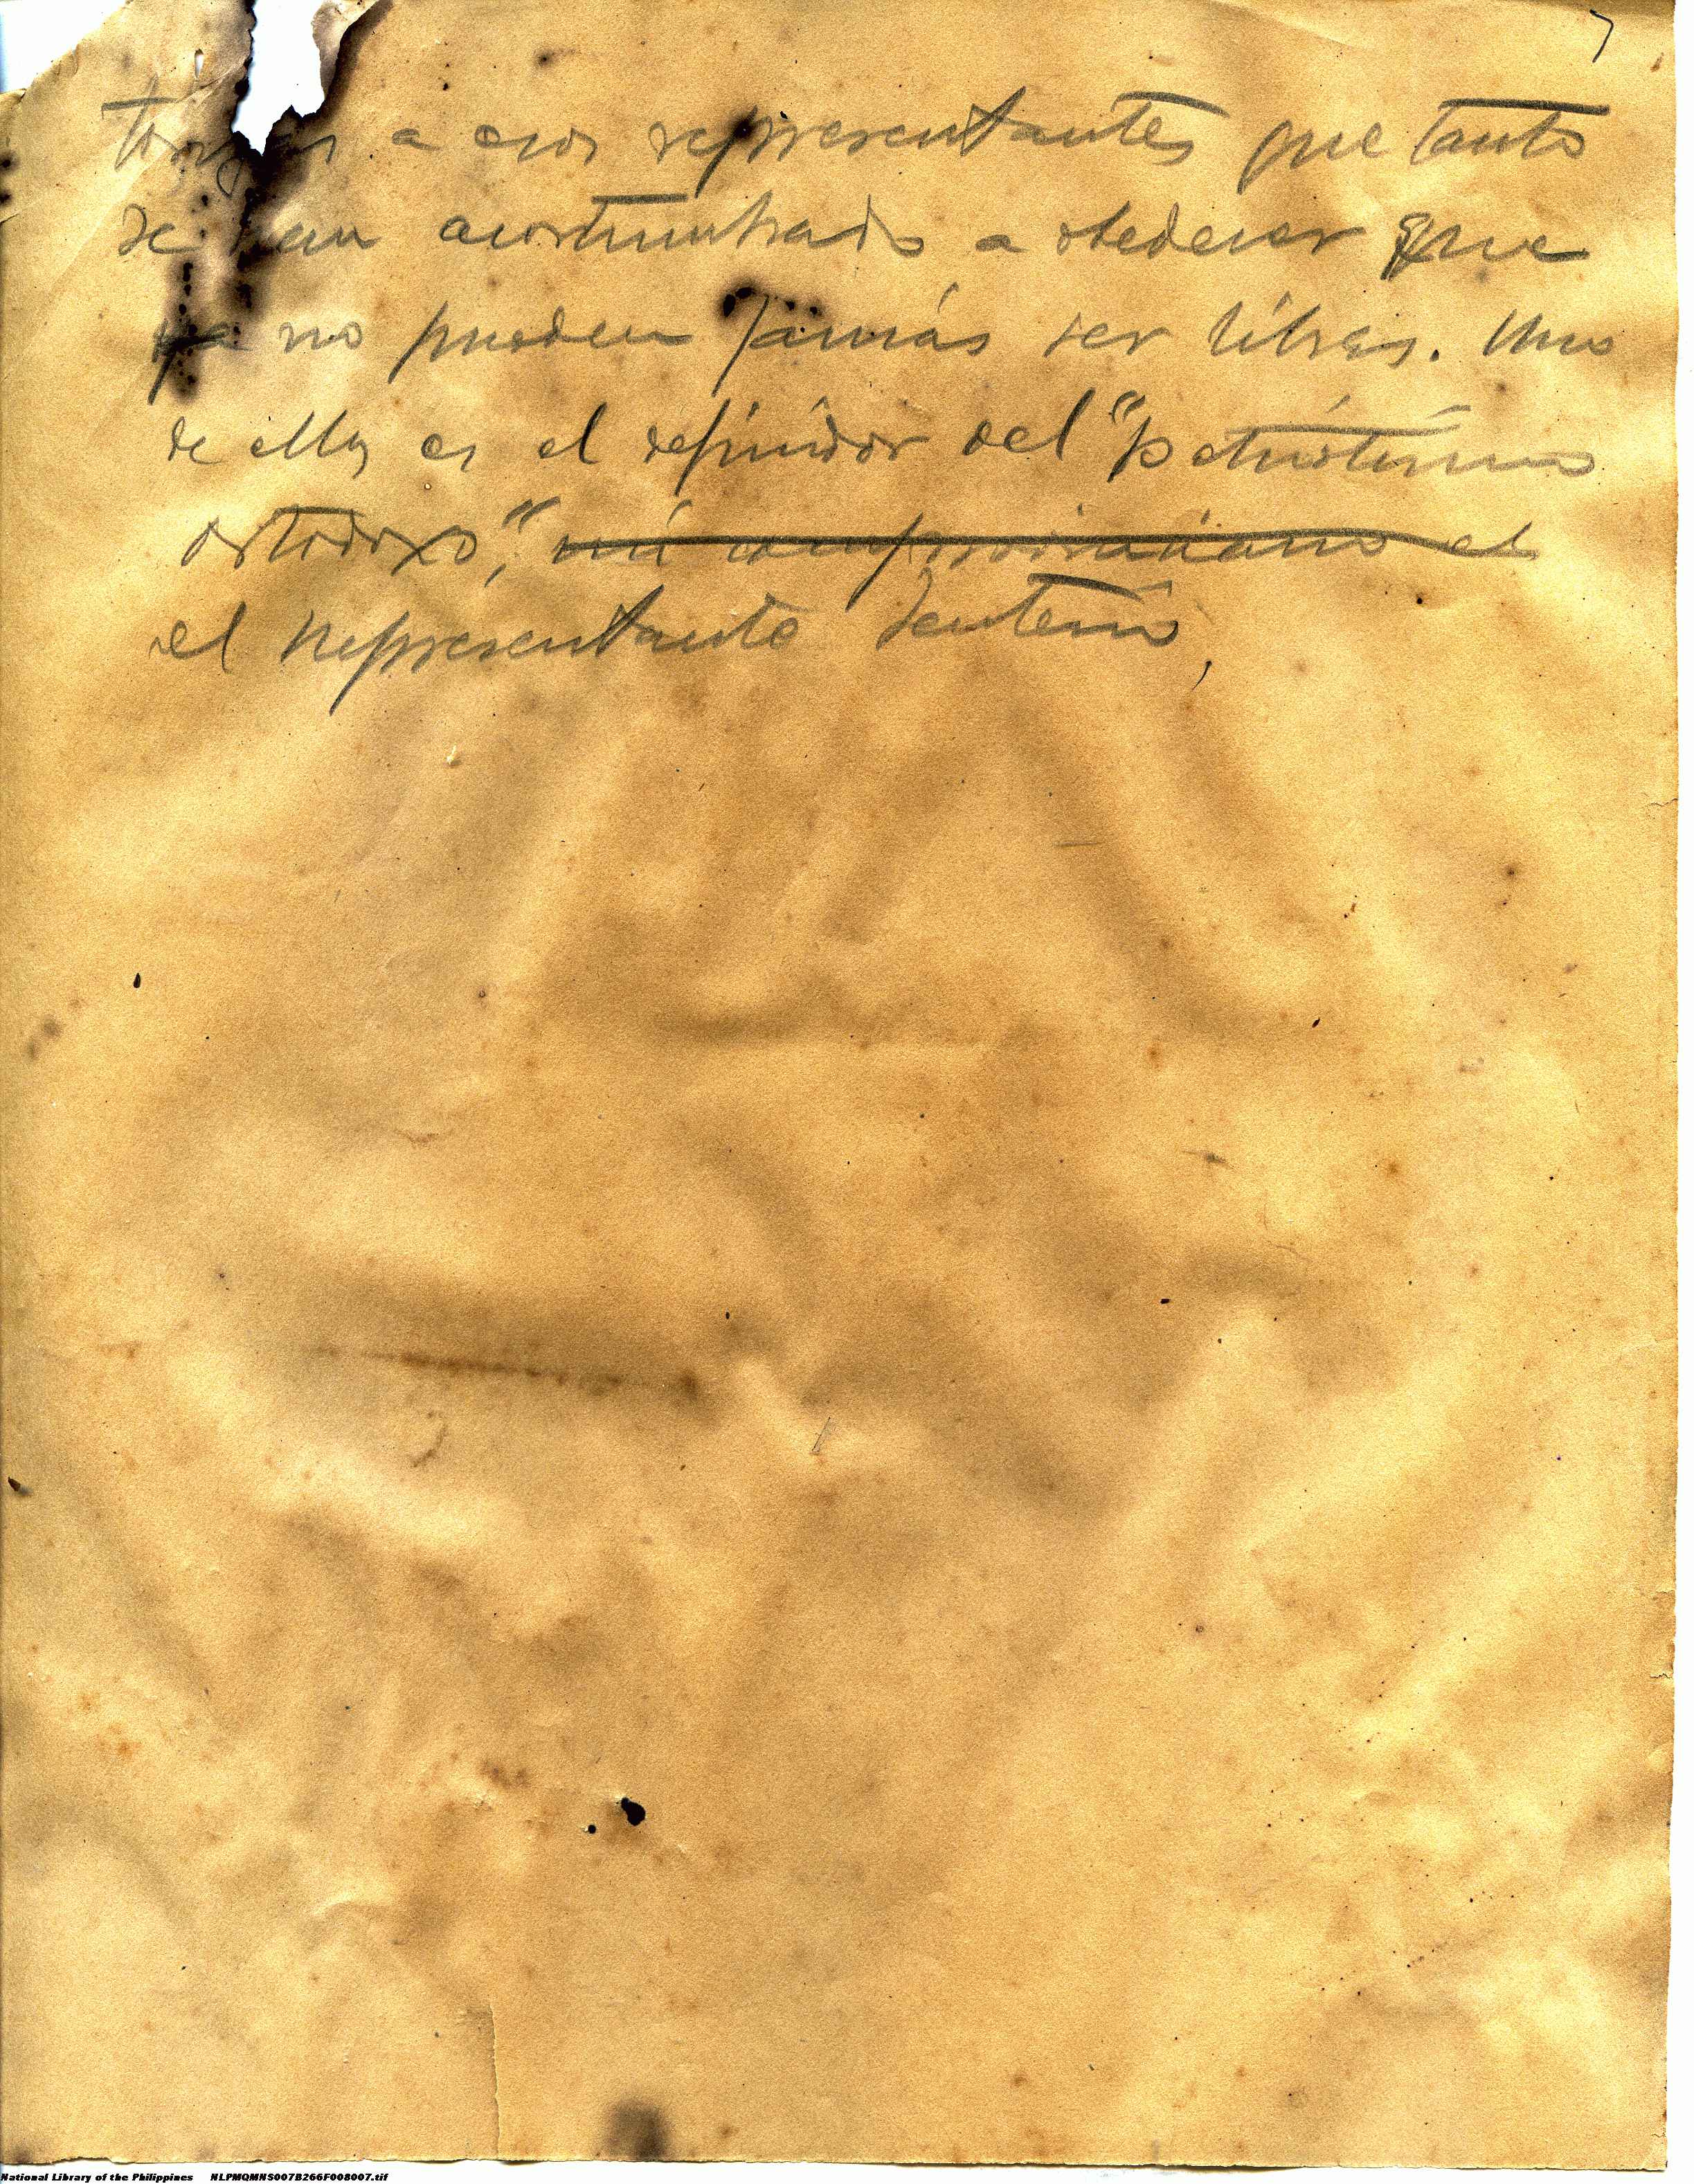 7
a esos representantes que tanto
se han acostumbrado a obedecer que
ya no pueden jamás ser libres. Uno
de ellos es el definidor del "patriotismo
ortodoxo", mi comprovinciano el
el representante Sentenio,
National Library of the Philippines NLPMQMNS007B266F008007.tif